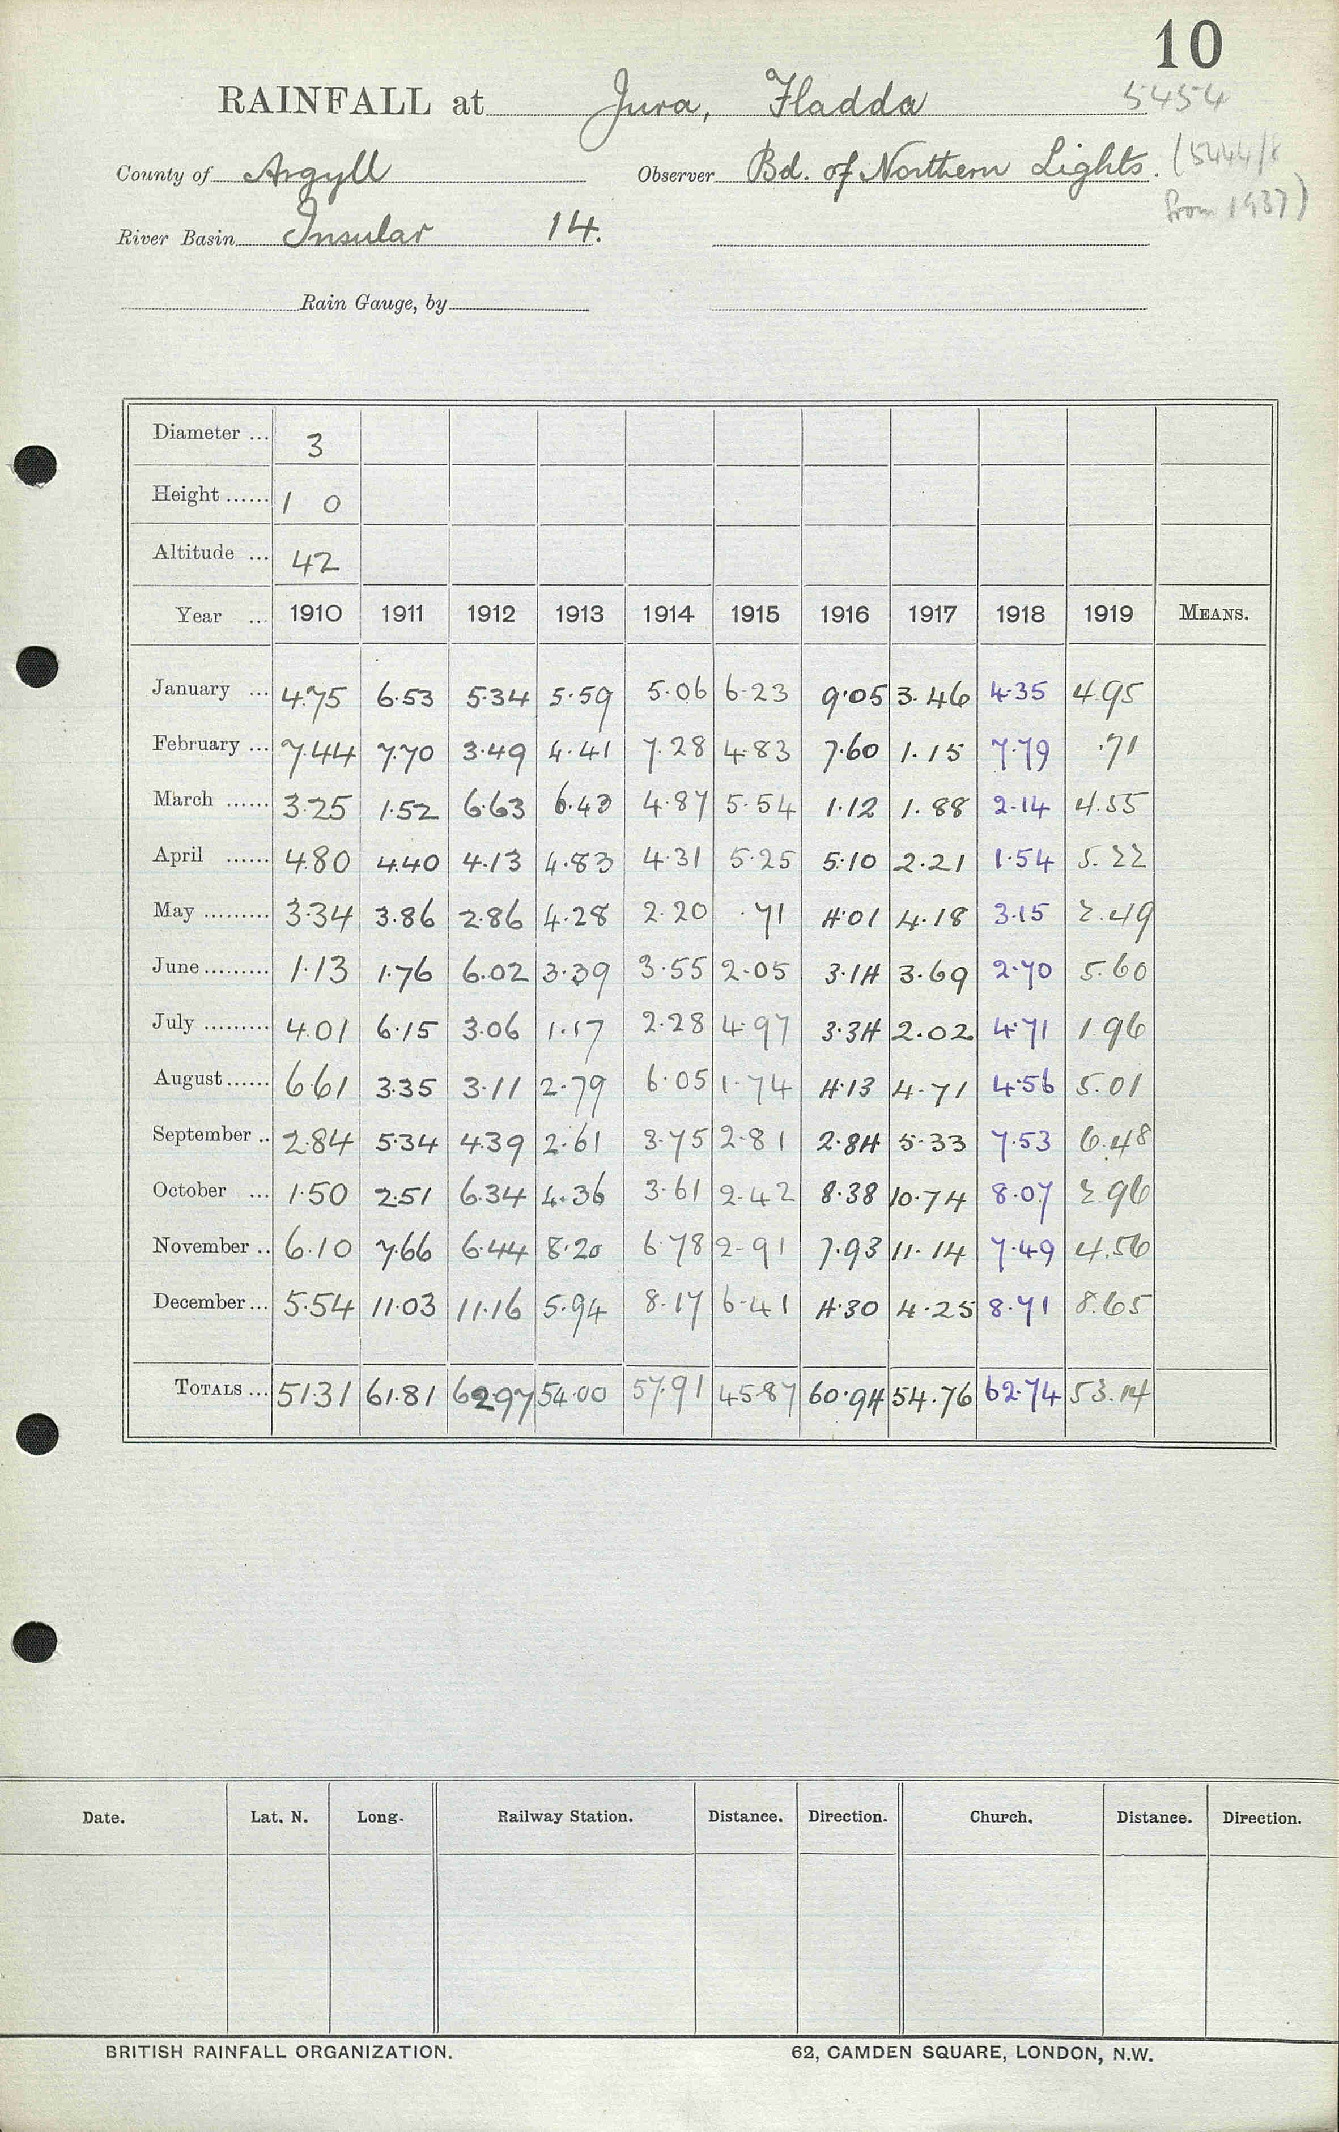 10
RAINFALL at Jura, Fladda 5454
County of Argyll Observer Bd. of Northern Lights. (5444/8
from 1937)
River Basin Insular 14.
Rain Gauge, by
Diameter ... 3
Height ...... 1 0
Altitude ... 42
Year ... 1910 1911 1912 1913 1914 1915 1916 1917 1918 1919 MEANS.
January ... 4.75 6.53 5.34 5.59 5.06 6.23 9.05 3.46 4.35 4.95
February ... 7.44 7.70 3.49 4.41 7.28 4.83 7.60 1.15 7.79 .71
March ...... 3.25 1.52 6.63 6.43 4.87 5.54 1.12 1.88 2.14 4.55
April ...... 4.80 4.40 4.13 4.83 4.31 5.25 5.10 2.21 1.54 5.22
May ......... 3.34 3.86 2.86 4.28 2.20 .71 4.01 4.18 3.15 2.49
June ......... 1.13 1.76 6.02 3.39 3.55 2.05 3.14 3.69 2.70 5.60
July ......... 4.01 6.15 3.06 1.17 2.28 4.97 3.34 2.02 4.71 1 96
August ...... 6.61 3.35 3.11 2.79 6.05 1.74 4.13 4.71 4.56 5.01
September .. 2.84 5.34 4.39 2.61 3.75 2.81 2.84 5.33 7.53 6.48
October ... 1.50 2.51 6.34 4.36 3.61 2.42 8.38 10.74 8.07 2.96
November .. 6.10 7.66 6.44 8.20 6.78 2.91 7.93 11.14 7.49 4.56
December ... 5.54 11.03 11.16 5.94 8.17 6.41 4.30 4.25 8.71 8.65
TOTALS ... 51.31 61.81 62.97 54.00 57.91 45.87 60.94 54.76 62.74 53.14
Date. Lat. N. Long. Railway Station. Distance. Direction. Church. Distance. Direction.
BRITISH RAINFALL ORGANIZATION. 62, CAMDEN SQUARE, LONDON, N.W.